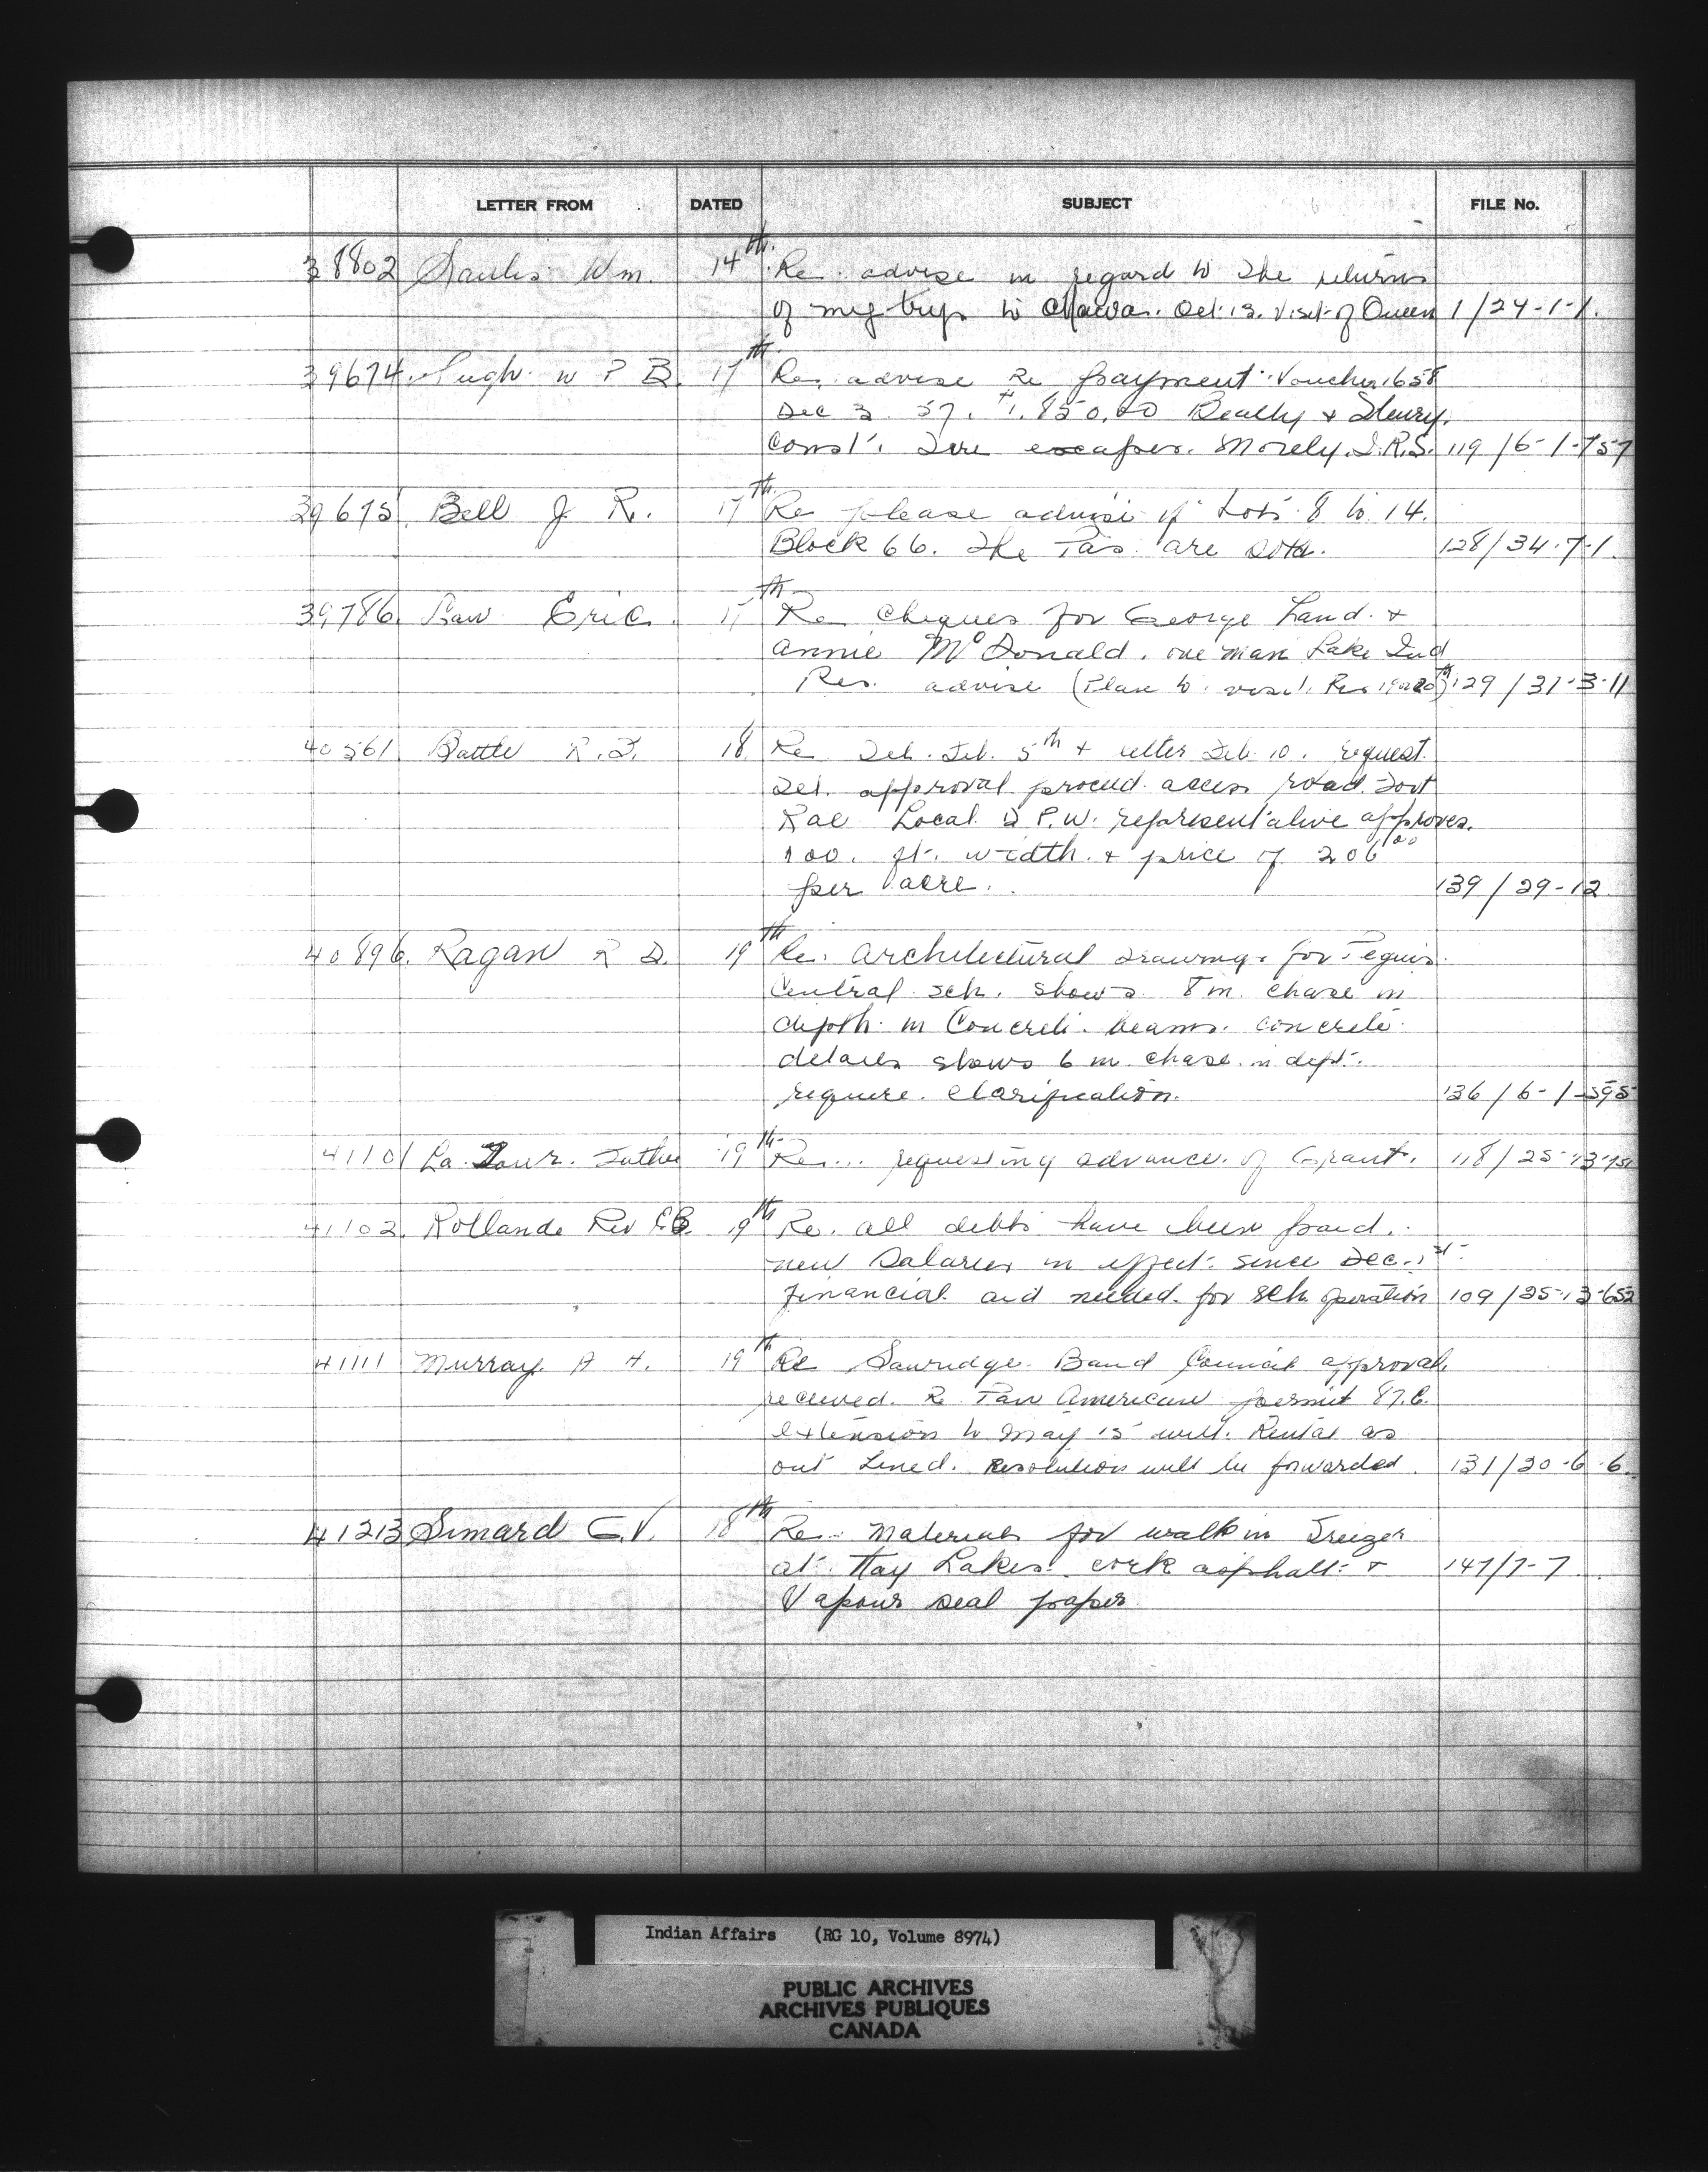 LETTER FROM DATED SUBJECT FILE No.
38802 Saulis Wm. 14th. Re. advise in regard to the returns
of my trip to Ottawa. Oct. 13. Visit of Queen 1/24-1-1.
39674. Pugh W P B. 17th Re. advise Re payment Voucher 1658
Dec 3. 57. $1,850.00 Beatty &
Const. Fire escapes. Morely. I.R.S. 119/6-1-757
39675. Bell J. R. 17th Re please advise if Lots 8 to 14.
Block 66. The Pas. are sold. 128/34-7-1.
39786. Law Eric. 17th Re cheques for George Land. &
Annie McDonald. one man Lake Ind
Res. advise (Plan to visit. Res 19 or 20th) 129/37-3-11
40561 Battle R. F. 18. Re Tel. Feb. 5th & letter Feb. 10. request.
Tel. approval proceed access road Fort
Rae Local D.P.W. representative approves.
100. ft. width. & price of 206.00
per acre. 139/29-12.
40896. Ragan R D. 19th Re. architectural drawings for Peguis.
Central sch. shows 8 in. chase in
depth in Concrete. beams. concrete
details shows 6 in. chase in dept.
require. clarification. 136/6-1-595
41101 La Four. Luther 19th Re... requesting advance. of Grant. 118/25-13-751
41102. Rollande Rev E B. 19th Re. all debts have been paid.
new salaries in effect since Dec. 1st.
financial aid needed. for sch. operation 109/25-13-652
41111 Murray. A H. 19th Re Sawridge Band Council approval,
received. Re Pan American permit 87. C.
extension to May 15 with. Rental as
out Lined. Resolution will be forwarded. 131/30-6-6.
41213 Simard G.V. 18th Re. Materials for walk in Freezer
at Hay Lakes. cork asphalt & 147/7-7
Vapour seal paper
Indian Affairs (RG 10, Volume 8974)
PUBLIC ARCHIVES
ARCHIVES PUBLIQUES
CANADA